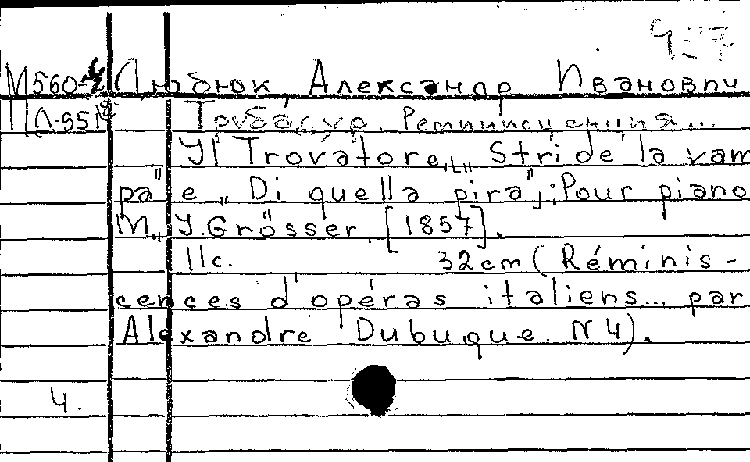 427
М560-4 Дюбюк, Александр Иванович
Трубадур. Реминисценция...
Il Trovatore, „Stride la vam
pa" e „Di quella pira"; Pour piano
M., J. Grösser [1857].
11с. 32cm (Réminis-
cences d'opéras italiens... par
Alexandre Dubuque N 4).
4.